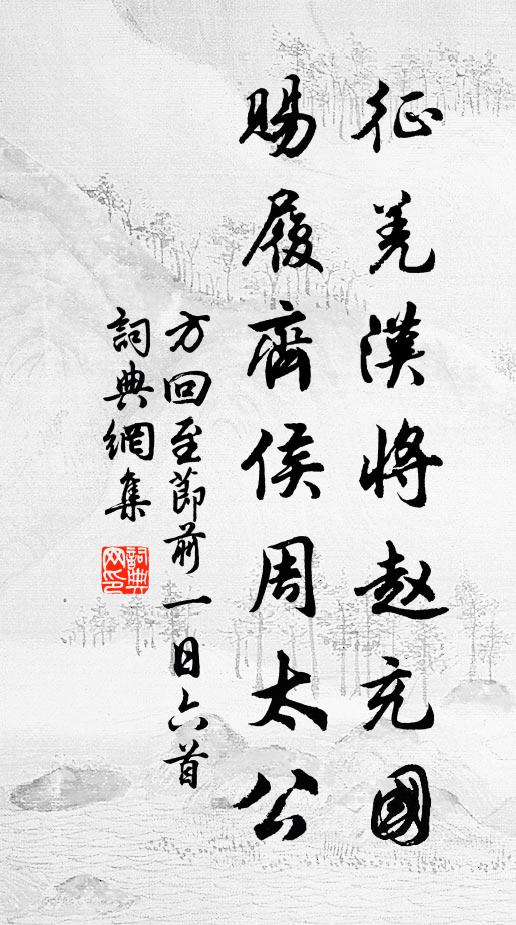 征羌漢將趙充國
賜履齊侯周太公
方回至節前一日六首
詞典網集
詞典网印